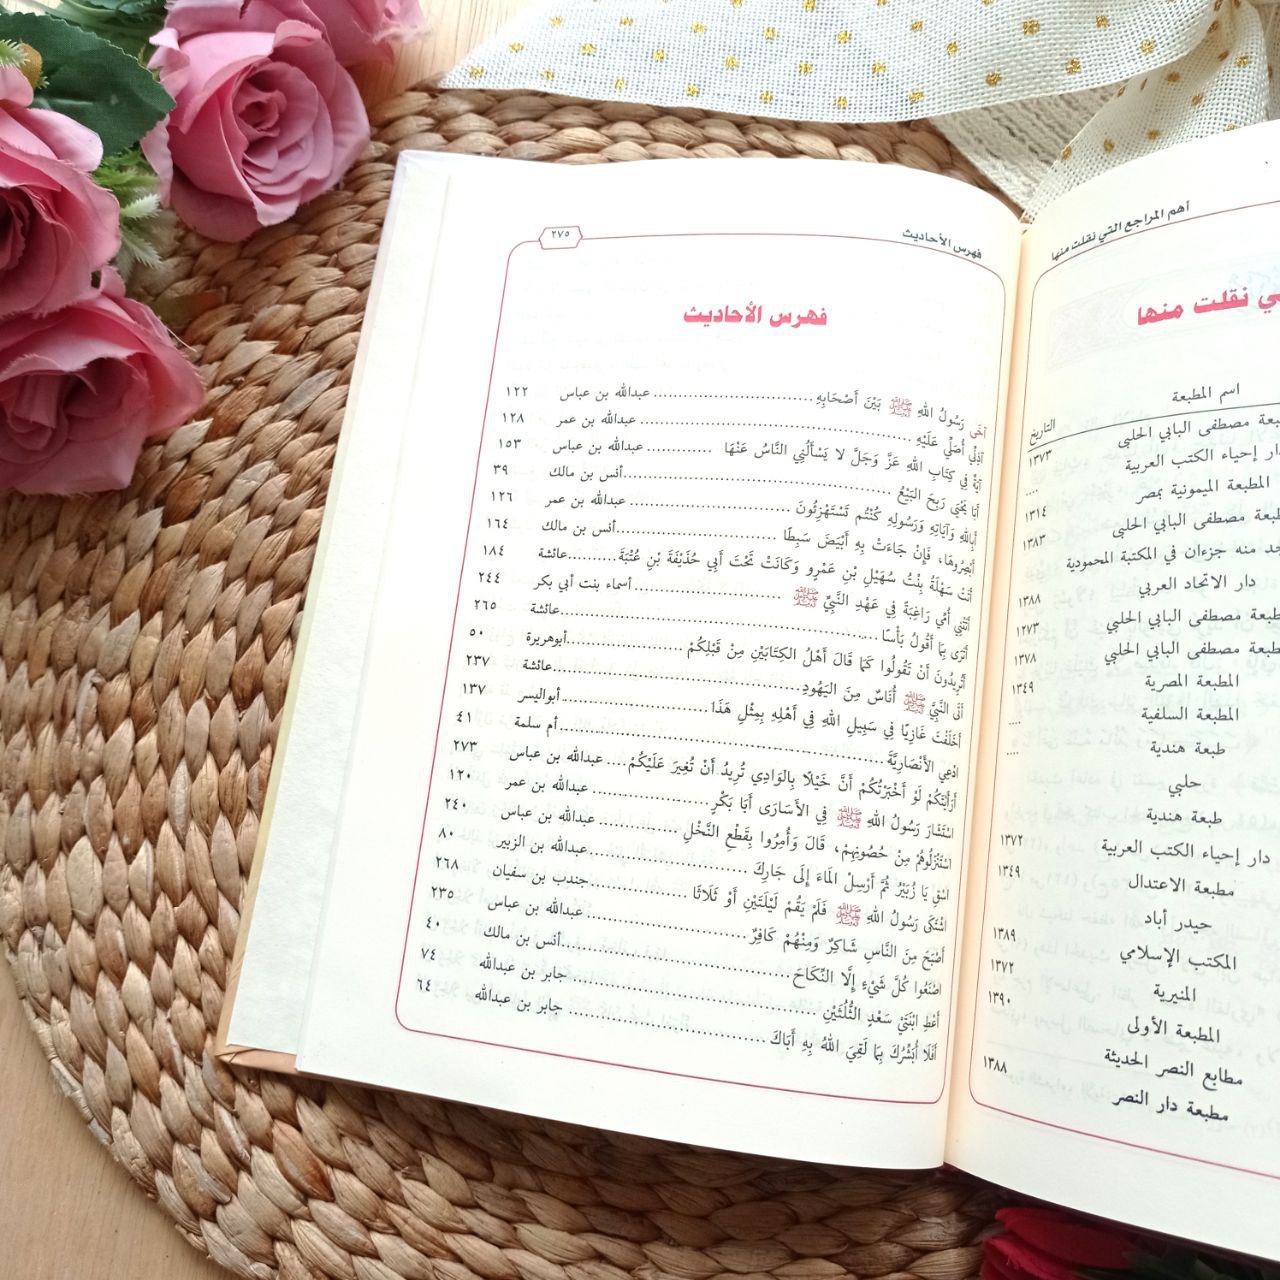 أهم المراجع التي نقلت منها
نقلت منها
اسم المطبعة
التاريخ
مصطفى البابي الحلبي ١٣٧٣
دار إحياء الكتب العربية ....
المطبعة الميمونية بمصر ١٣١٤
مصطفى البابي الحلبي ١٣٨٣
منه جزءان في المكتبة المحمودية
دار الاتحاد العربي ١٣٨٨
مصطفى البابي الحلبي ١٢٧٣
مصطفى البابي الحلبي ١٣٧٨
المطبعة المصرية ١٣٤٩
المطبعة السلفية ....
طبعة هندية ....
حلبي
طبعة هندية
دار إحياء الكتب العربية ١٣٧٢
مطبعة الاعتدال ١٣٤٩
حيدر أباد
المكتب الإسلامي ١٣٨٩
المنيرية ١٣٧٢
المطبعة الأولى ١٣٩٠
مطابع النصر الحديثة
مطبعة دار النصر ١٣٨٨
فهرس الأحاديث ٢٧٥
فهرس الأحاديث
آخَى رَسُولُ اللهِ ﷺ بَيْنَ أَصْحَابِهِ ........ عبدالله بن عباس ١٢٢
آذِنِّي أُصَلِّي عَلَيْهِ ........ عبدالله بن عمر ١٢٨
آيَةٌ فِي كِتَابِ اللهِ عَزَّ وَجَلَّ لا يَسْأَلُنِي النَّاسُ عَنْهَا ........ عبدالله بن عباس ١٥٣
أَبَا يَحْيَى رَبِحَ البَيْعُ ........ أنس بن مالك ٣٩
أَبِاللهِ وَآيَاتِهِ وَرَسُولِهِ كُنْتُم تَسْتَهْزِئُونَ ........ عبدالله بن عمر ١٢٦
أَبْصِرُوهَا، فَإِنْ جَاءَتْ بِهِ أَبْيَضَ سَبِطًا ........ أنس بن مالك ١٦٤
أَتَتْ سَهْلَةُ بِنْتُ سُهَيْلِ بْنِ عَمْرٍو وَكَانَتْ تَحْتَ أَبِي حُذَيْفَةَ بْنِ عُتْبَةَ ........ عائشة ١٨٤
أَتَتْنِي أُمِّي رَاغِبَةً فِي عَهْدِ النَّبِيِّ ﷺ ........ أسماء بنت أبي بكر ٢٤٤
أَتَرَى بِمَا أَقُولُ بَأْسًا ........ عائشة ٢٦٥
أَتُرِيدُونَ أَنْ تَقُولُوا كَمَا قَالَ أَهْلُ الكِتَابَيْنِ مِنْ قَبْلِكُمْ ........ أبوهريرة ٥٠
أَتَى النَّبِيَّ ﷺ أُنَاسٌ مِنَ اليَهُودِ ........ عائشة ٢٣٧
أَخَلَفْتَ غَازِيًا فِي سَبِيلِ اللهِ فِي أَهْلِهِ بِمِثْلِ هَذَا ........ أبواليسر ١٣٧
ادْعِي الأَنْصَارِيَّةَ ........ أم سلمة ٤١
أَرَأَيْتَكُمْ لَوْ أَخْبَرْتُكُمْ أَنَّ خَيْلًا بِالوَادِي تُرِيدُ أَنْ تُغِيرَ عَلَيْكُمْ .... عبدالله بن عباس ٢٧٣
اسْتَشَارَ رَسُولُ اللهِ ﷺ فِي الأَسَارَى أَبَا بَكْرٍ ........ عبدالله بن عمر ١٢٠
اسْتَنْزَلُوهُمْ مِنْ حُصُونِهِمْ، قَالَ وَأُمِرُوا بِقَطْعِ النَّخْلِ ........ عبدالله بن عباس ٢٤٠
اسْقِ يَا زُبَيْرُ ثُمَّ أَرْسِلْ المَاءَ إِلَى جَارِكَ ........ عبدالله بن الزبير ٨٠
اشْتَكَى رَسُولُ اللهِ ﷺ فَلَمْ يَقُمْ لَيْلَتَيْنِ أَوْ ثَلَاثًا ........ جندب بن سفيان ٢٦٨
أَصْبَحَ مِنَ النَّاسِ شَاكِرٌ وَمِنْهُمْ كَافِرٌ ........ عبدالله بن عباس ٢٣٥
اصْنَعُوا كُلَّ شَيْءٍ إِلَّا النِّكَاحَ ........ أنس بن مالك ٤٠
أَعْطِ ابْنَتَيْ سَعْدٍ الثُّلُثَيْنِ ........ جابر بن عبدالله ٧٤
أَفَلَا أُبَشِّرُكَ بِمَا لَقِيَ اللهُ بِهِ أَبَاكَ ........ جابر بن عبدالله ٦٤